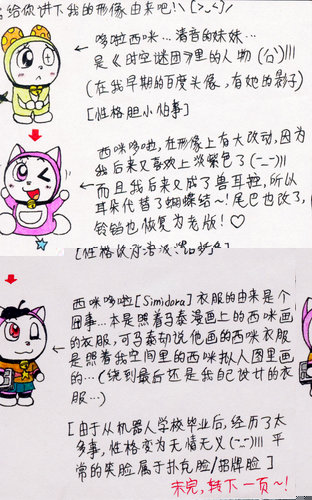 给你讲下我的形像由来吧!\(>_<)/
哆啦西咪...清音的妹妹...
是《时空谜团》里的人物
(在我早期的百度头像,有她的影子)
[性格胆小怕事]
西咪哆啦,在形像上有大改动,因为
我后来又喜欢上淡紫色了(-_-)lll
而且我后来又成了兽耳控,所以
耳朵代替了蝴蝶结~!尾巴也改了,
铃铛也,恢复为老版!♡
[性格
西咪哆啦[Simidora]衣服的由来是个
囧事...本是照着哆泰漫画上的西咪画
的衣服,可哆泰却说他画的西咪衣服
是照着我空间里的西咪拟人图里画
的...(绕到最后还是我自己改的衣
服...)
[由于从机器人学校毕业后,经历了太
多事,性格变为无情无义(-_-)lll 平
常的笑脸属于扑克脸/招牌脸]
未完,转下一页~!